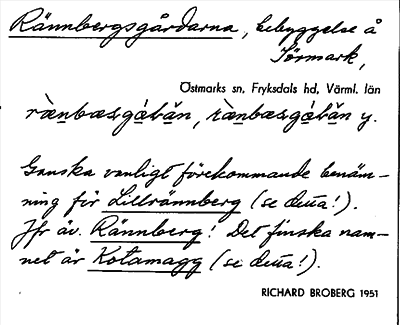 Rännbergsgårdarna, bebyggelse å
Sörmark,
Östmarks sn, Fryksdals hd, Värml. län
Ganska vanligt förekommande benäm-
ning för Lillrännberg (se detta!).
Jfr äv. Rännberg! Det finska nam-
net är Kotamagg (se detta!).
RICHARD BROBERG 1951